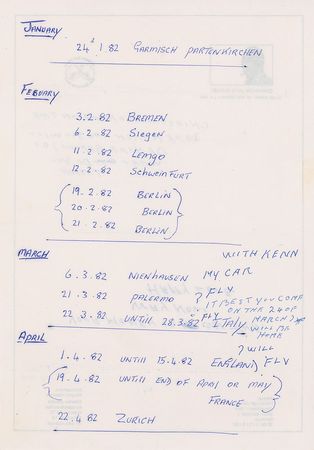 JANUARY
24 1.82 GARMISCH PARTENKIRCHEN
FEBUARY
3.2.82 BREMEN
6.2.82 Siegen
11.2.82 Lemgo
12.2.82 SCHWEINFURT
19.2.82 BERLIN
20.2.82 BERLIN
21.2.82 BERLIN
MARCH WITH KENN
6.3.82 NIENHAUSEN MY CAR
21.3.82 PALERMO ? FLY
22 3.82 UNTILL 28.3.82 ITALY FLY
IT BEST YOU COME
ON THE 24 OF
MARCH)
WILL BE
HOME
APRIL
? WILL
1.4.82 UNTILL 15.4.82 ENGLAND) FLY
19.4.82 UNTILL END OF APRIL OR MAY
FRANCE
22.4.82 ZURICH